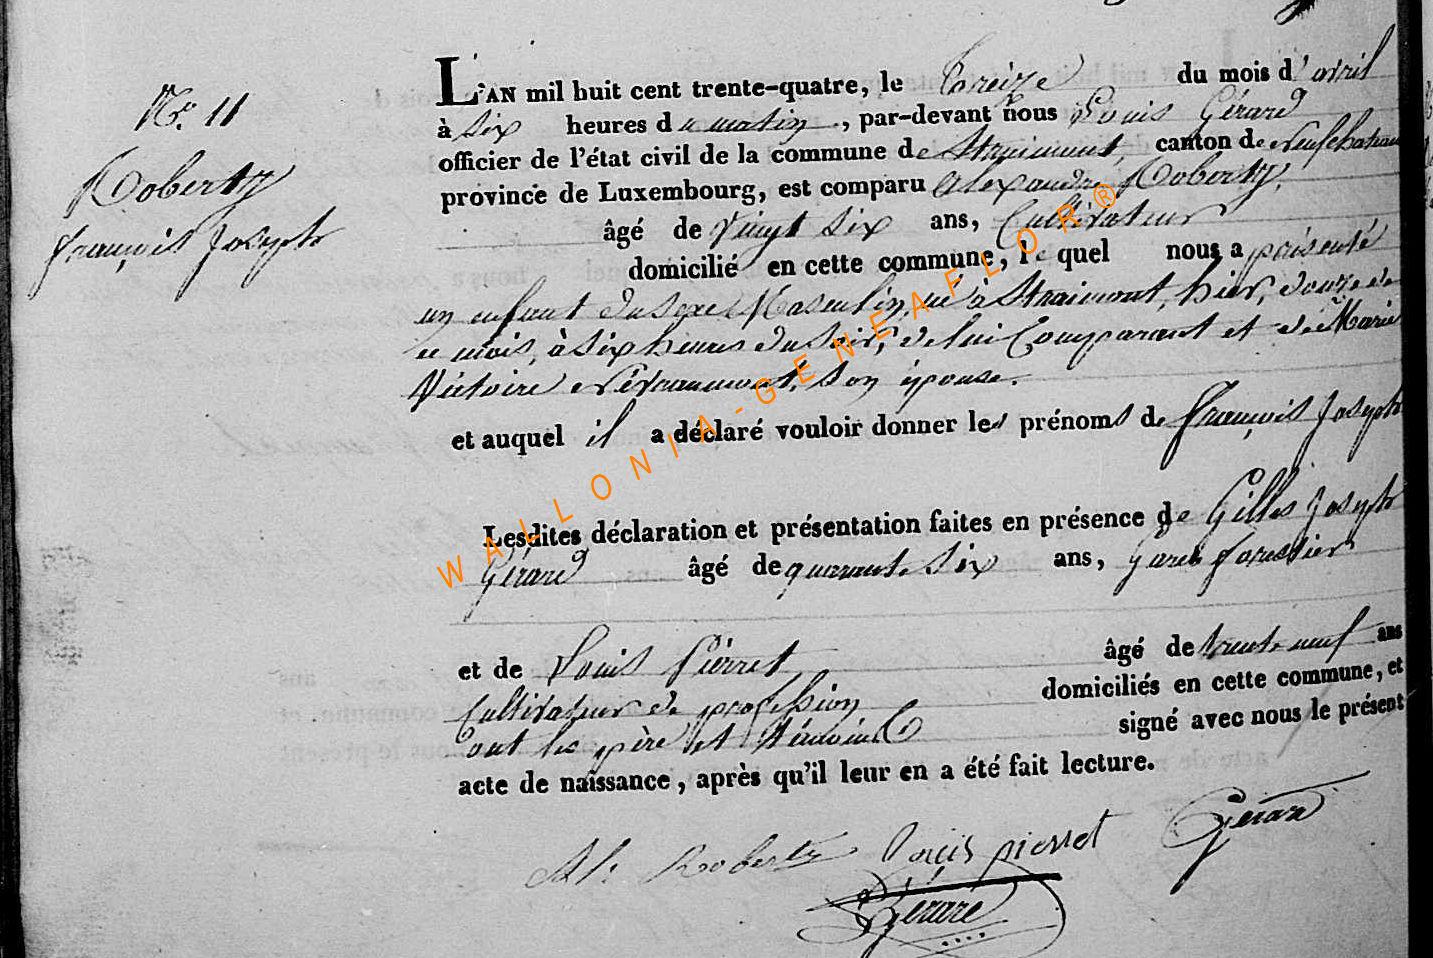 N.° 11
Roberty
François Joseph
L'AN mil huit cent trente-quatre, le treize du mois d'avril
à six heures du matin, par-devant nous Louis Gérard
officier de l'état civil de la commune de Straimont, canton de Neufchateau
province de Luxembourg, est comparu Alexandre Roberty,
âgé de vingt six ans, Cultivateur
domicilié en cette commune, lequel nous a présenté
un enfant du sexe Masculin, né à Straimont, hier, douze de
ce mois, à six heures du soir, de lui Comparant et de Marie
Victoire son épouse.
et auquel il a déclaré vouloir donner les prénoms de François Joseph
Lesdites déclaration et présentation faites en présence de Gilles Joseph
Gérard âgé de quarante six ans, garde forestier
et de Louis Pierret âgé de trente neuf ans
Cultivateur de profession domiciliés en cette commune, et
ont les père et témoins signé avec nous le présent
acte de naissance, après qu'il leur en a été fait lecture.
Al. Roberty Louis pierret Gérard
Gérard
WALLONIA-GENEAFLOR®